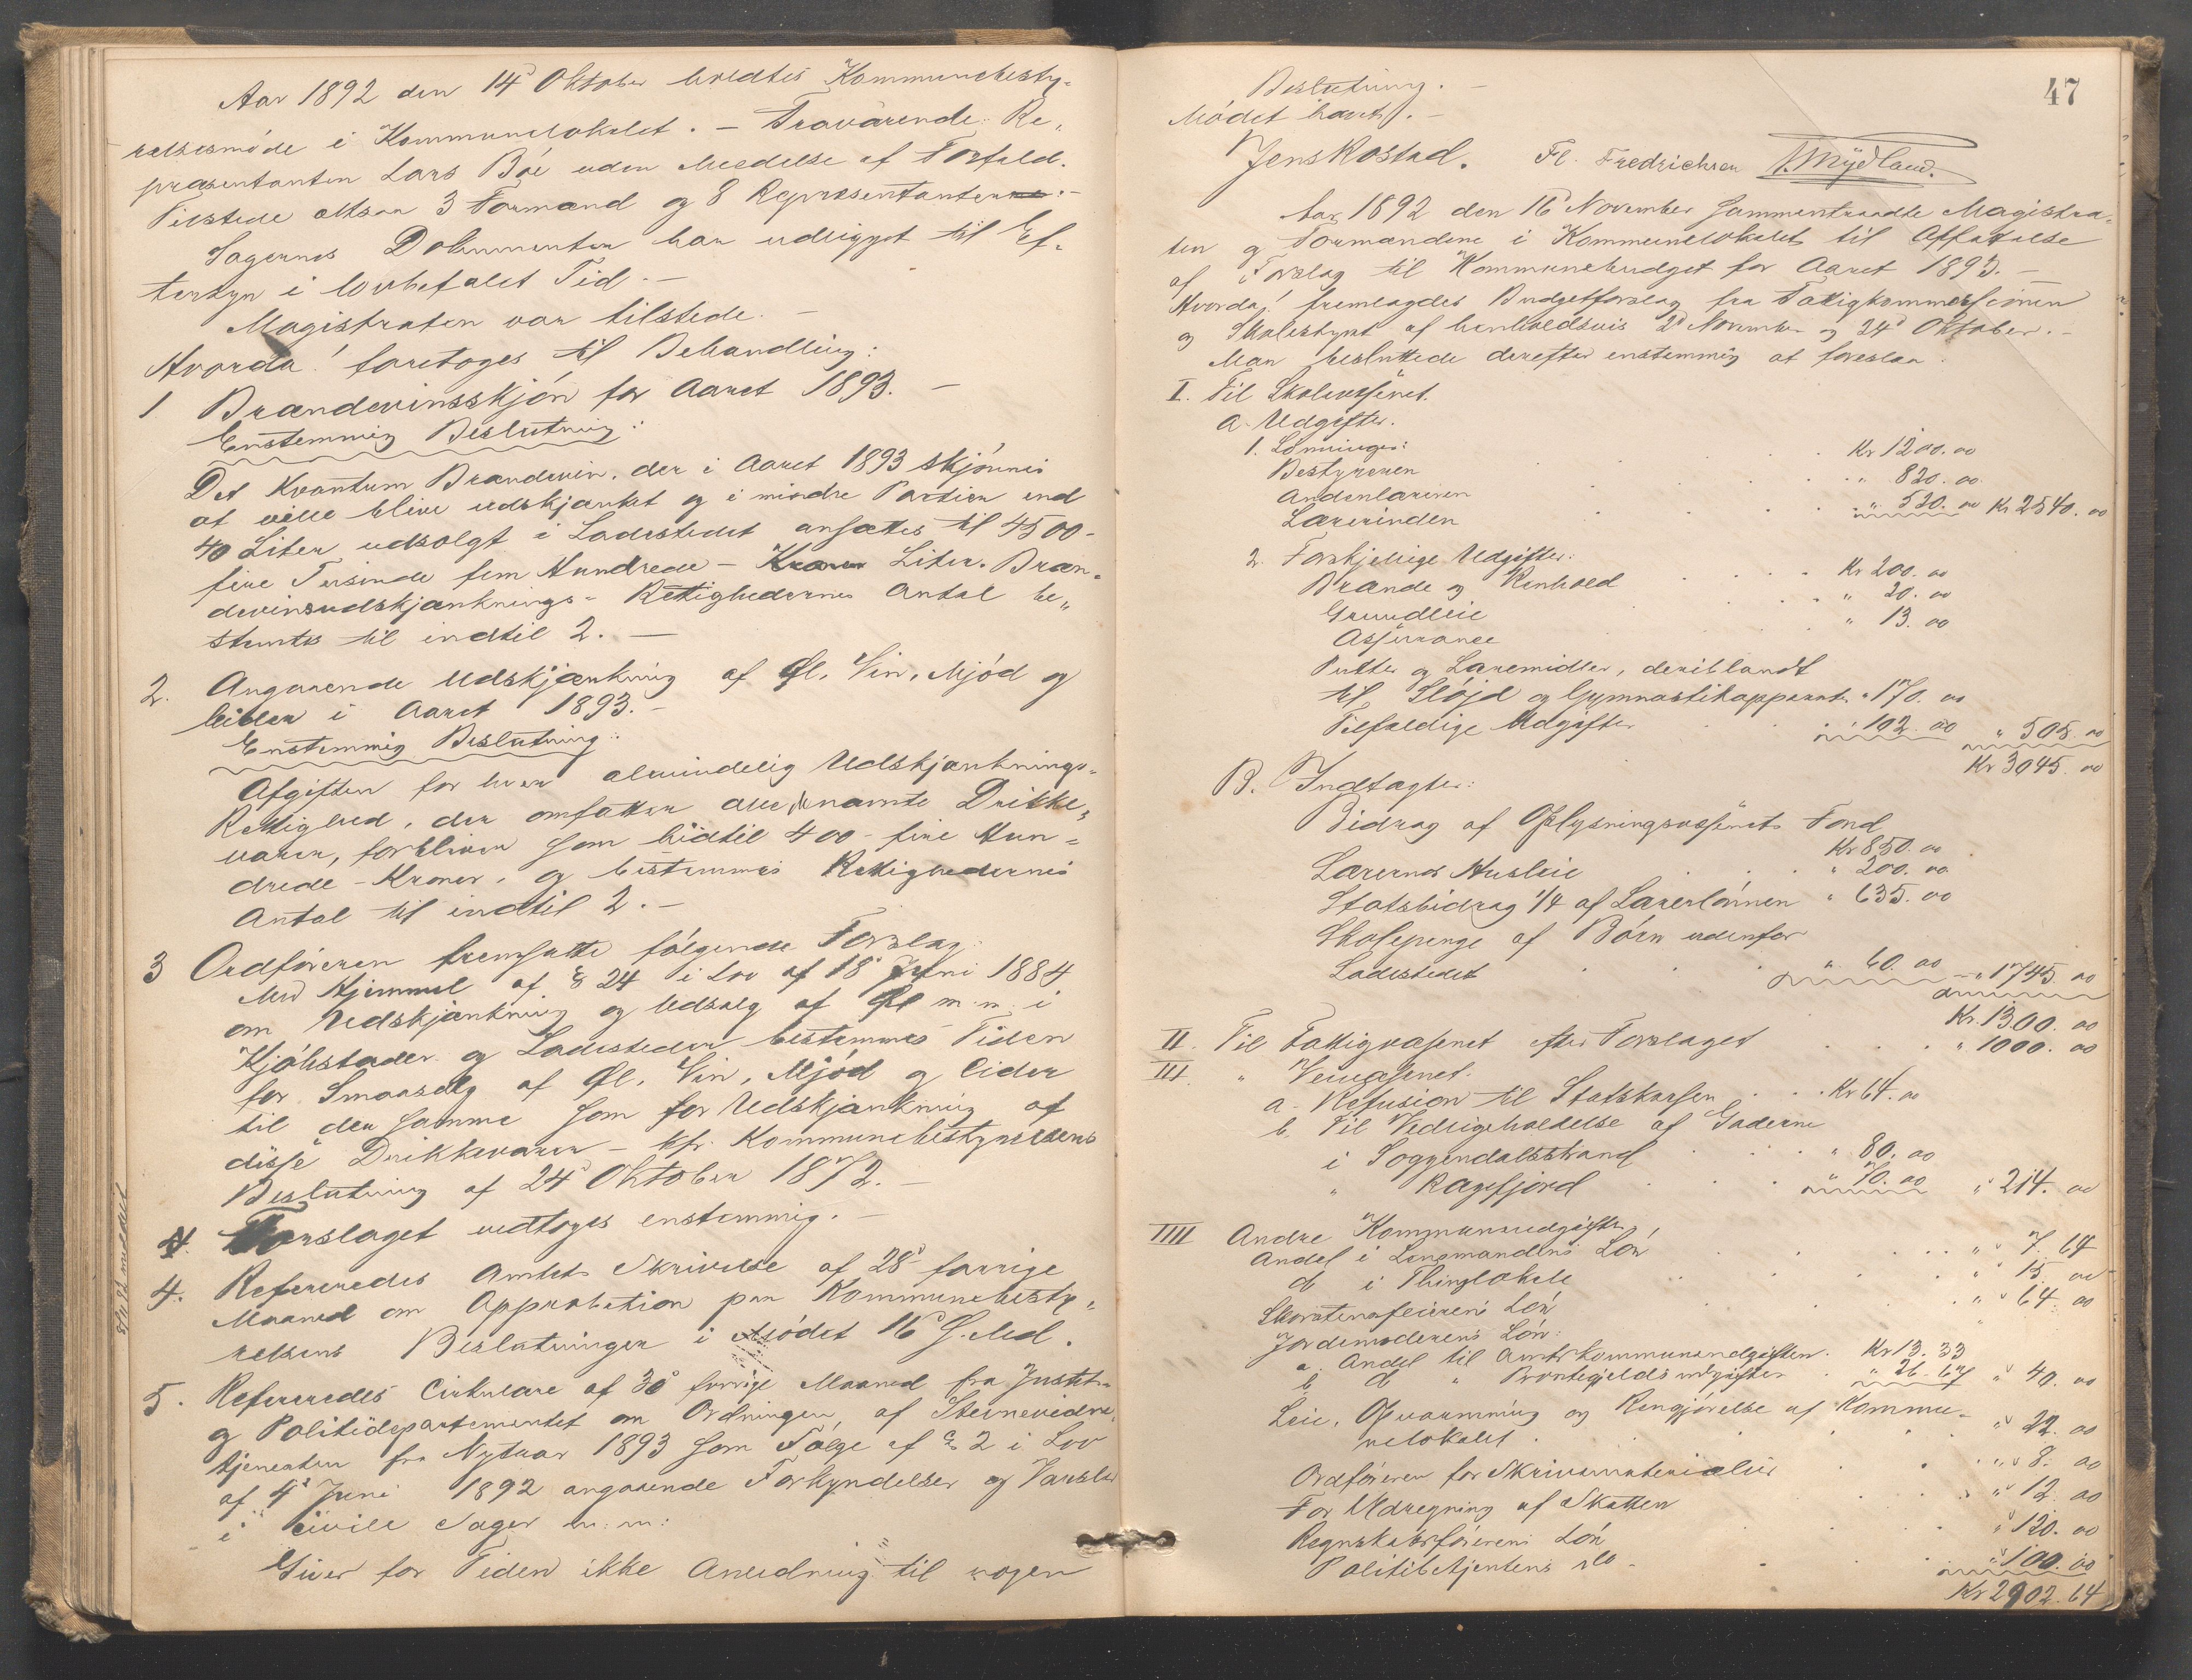 Aar 1892 den 14d Oktober holdtes Kommunebesty-
relsesmøde i Kommunelokalet. – Fraværende: Re-
præsentanten Lars Bøe uden Meddelse af Forfald.
Tilstede altsaa 3 Formænd og 8 Repræsentanter. –
Sagernes Dokumenter har udligget til Ef-
tersyn i lovbefalet Tid. –
Magistraten var tilstede. –
Hvorda! foretoges til Behandling:
1 Brændevinsskjøn for Aaret 1893. –
Enstemmig Beslutning:
Det Kvantum Brændevin, der i Aaret 1893 skjønnes
at ville blive udskjænket og i mindre Partier end
40 Liter udsolgt i Ladestedet ansættes til 4500 –
fire Tusinde fem Hundrede – Liter. Bræn-
devinsudskjænknings-Rettighedernes Antal be-
stemtes til indtil 2. –
2. Angaaende Udskjænkning af Øl, Vin, Mjød og
Cider i Aaret 1893. –
Enstemmig Beslutning:
Afgiften for hver almindelig Udskjænknings-
Rettighed, der omfatter alle nævnte Drikke-
varer, forbliver som hidtil 400 – fire Hun-
drede – Kroner, og bestemmes Rettighedernes
Antal til indtil 2. –
3 Ordføreren fremsatte følgende Forslag:
Med Hjemmel af § 24 i Lov af 18d Juni 1884
om Udskjænkning og Udsalg af Øl m. m. i
Kjøbstæder og Ladesteder bestemmes Tiden
for Smaasalg af Øl, Vin, Mjød og Cider
til den samme som for Udskjænkning af
disse Drikkevarer – kfr. Kommunebestyrelsens
Beslutning af 24d Oktober 1872. –
Forslaget vedtoges enstemmig. –
4. Refereredes Amtets Skrivelse af 28d forrige
Maaned om Approbation paa Kommunebesty-
relsens Beslutninger i Mødet 16d S. Md.
5. Refereredes Cirkulære af 30d forrige Maaned fra Justits-
og Politidepartementet om Ordningen af Stevnevidne-
tjenesten fra Nytaar 1893 som Følge af § 2 i Lov
af 4d Juni 1892 angaaende Forkyndelser og Varsler
i civile Sager m. m:
Giver for Tiden ikke Anledning til nogen
47
Beslutning. –
Mødet hævet. –
Jens Rostad. Fl. Fredrichsen Mydland.
Aar 1892 den 16d November sammentraadte Magistra-
ten og Formændene i Kommunelokalet til Affatelse
af Forslag til Kommunebudget for Aaret 1893. –
Hvorda! fremlagdes Budgetforslag fra Fattigkommissionen
og Skolestyret af henholdsvis 2d November og 24d Oktober. –
Man besluttede derefter enstemmig at foreslaa
I. Til Skolevæsenet.
A. Udgifter.
1. Lønninger:
Bestyreren Kr 1200. 00
Andenlæreren " 820. 00
Lærerinden " 520. 00 Kr 2540. 00
2. Forskjellige Udgifter:
Brænde og Renhold Kr 200. 00
Grundleie " 20. 00
Assurance " 13. 00
Pulter og Læremidler, deriblandt
til Sløjd og Gymnastikapparater " 170. 00
Tilfældige Udgifter " 102. 00 " 505. 00
Kr 3045. 00
B. Indtægter:
Bidrag af Oplysningsvæsenets Fond
Kr 850. 00
Lærernes Husleie " 200. 00
Statsbidrag 1/4 af Lærerlønnen " 635. 00
Skolepenge af Børn udenfor
Ladestedet " 60. 00 – " 1745. 00
Kr. 1300. 00
II. Til Fattigvæsenet efter Forslaget " 1000. 00
III. " Veivæsenet.
a. Refusion til Statskassen Kr 64. 00
b. Til Vedligeholdelse af Gaderne
i Soggendalsstrand " 80. 00
" Rægefjord " 70. 00 " 214. 00
IIII Andre Kommuneudgifter,
Andel i Lensmandens Løn " 7. 64
do i Thinglokale " 15. 00
Skorstensfeierens Løn " 64. 00
Jordemoderens Løn:
a. Andel til Amtskommuneudgiften. Kr 13. 33
b. do " Præstegjelds udgifter " 26. 67 " 40. 00
Leie, Opvarmning og Rengjørelse af Kommu-
nelokalet " 22. 00
Ordføreren for Skrivematerialier " 8. 00
For Udregning af Skatten " 12. 00
Regnskabsførerens Løn " 120. 00
Politibetjentens do " 100. 00
Kr 2902. 64